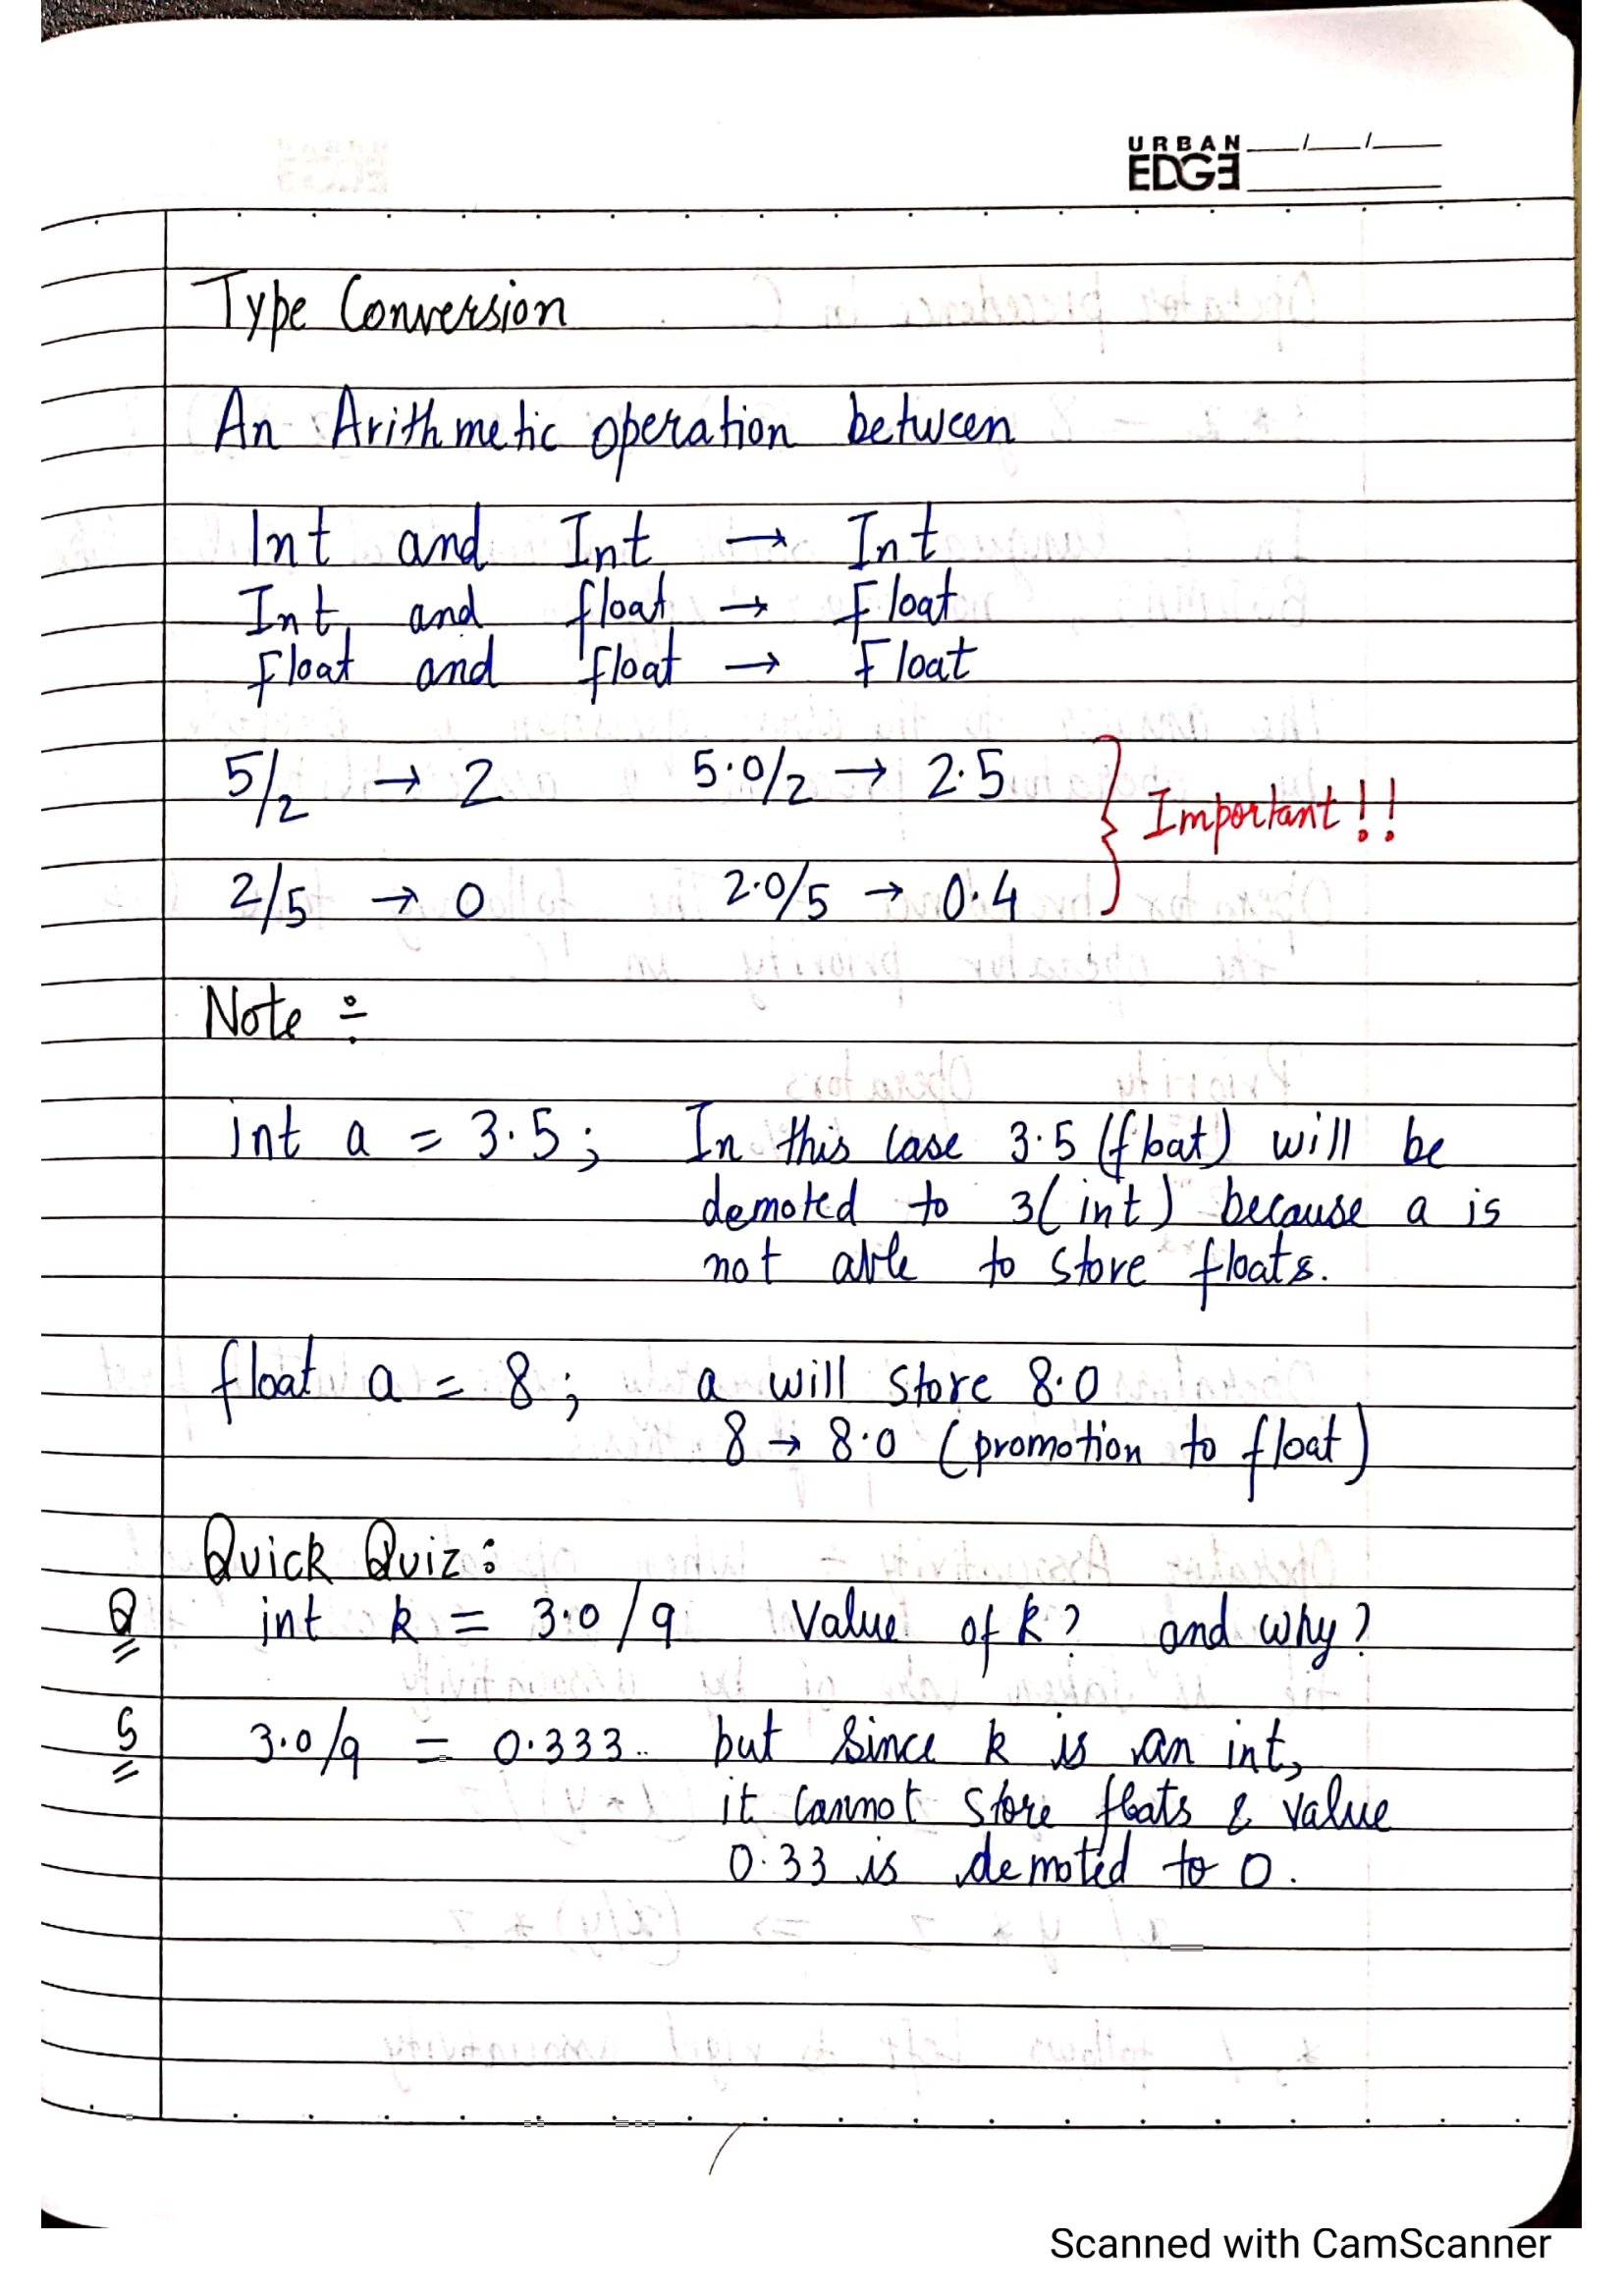 URBAN
EDGE
Type Conversion
An Arithmetic operation between
Int and Int → Int
Int and float → Float
Float and float → Float
5/2 → 2 5.0/2 → 2.5
Important!!
2/5 → 0 2.0/5 → 0.4
Note ÷
int a = 3.5; In this case 3.5 (float) will be
demoted to 3(int) because a is
not able to store floats.
float a = 8; a will store 8.0
8 → 8.0 (promotion to float)
Quick Quiz:
Q int k = 3.0/9 Value of k? and why?
S 3.0/9 = 0.333.. but since k is an int,
it cannot store floats & value
0.33 is demoted to 0.
Scanned with CamScanner